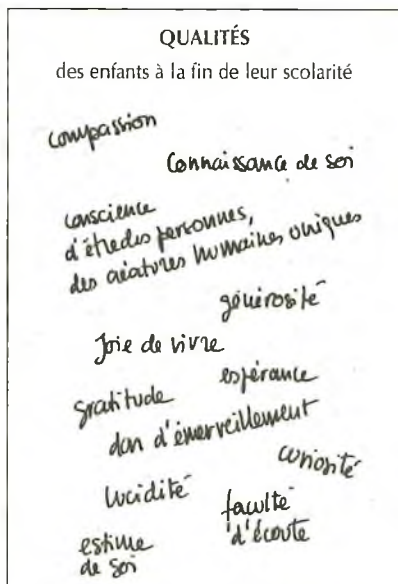 QUALITÉS
des enfants à la fin de leur scolarité
compassion
Connaissance de soi
conscience
d'êtres des personnes,
des créatures humaines uniques
générosité
Joie de vivre
espérance
gratitude
don d'émerveillement
curiosité
lucidité
faculté
d'écoute
estime
de soi